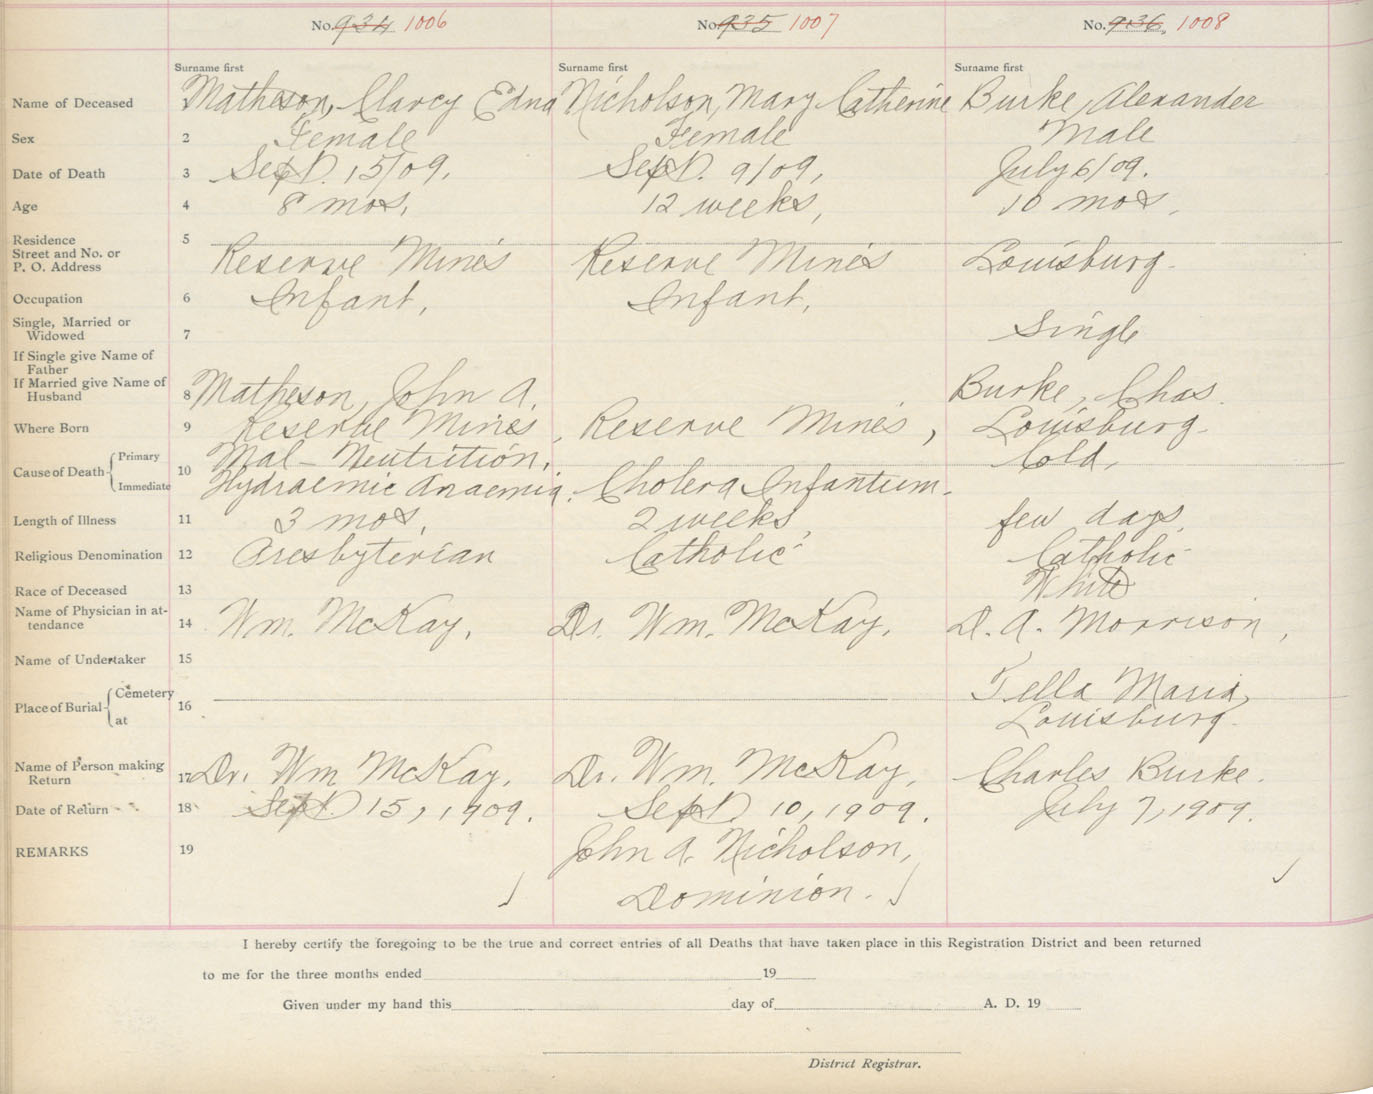 No. 934 1006 No. 935 1007 No. 936. 1008
Surname first Surname first Surname first
Name of Deceased 1 Matheson, Clarcy Edna Nicholson, Mary Catherine Burke, Alexander
Sex 2 Female Female Male
Date of Death 3 Sept. 15/09. Sept. 9/09, July 6/09.
Age 4 8 mos. 12 weeks, 10 mos.
Residence 5
Street and No. or
P. O. Address Reserve Mines Reserve Mines Louisburg.
Occupation 6 Infant, Infant,
Single, Married or
Widowed 7 Single
If Single give Name of
Father
If Married give Name of
Husband 8 Matheson, John A. Burke, Chas.
Where Born 9 Reserve Mines, Reserve Mines, Louisburg.
Cause of Death Primary 10 Mal-Neutrition. Cold,
Immediate Hydraemic Anaemia. Cholera Infantum.
Length of Illness 11 3 mos. 2 weeks few days.
Religious Denomination 12 Presbyterian Catholic Catholic
Race of Deceased 13 White
Name of Physician in at-
tendance 14 Wm. McKay, Dr. Wm. McKay. D. A. Morrison,
Name of Undertaker 15
Place of Burial Cemetery 16 Tella Maria,
at Louisburg.
Name of Person making
Return 17 Dr. Wm McKay. Dr. Wm. McKay, Charles Burke.
Date of Return 18 Sept. 15, 1909. Sept. 10, 1909. July 7, 1909.
REMARKS 19 John A. Nicholson,
Dominion.
I hereby certify the foregoing to be the true and correct entries of all Deaths that have taken place in this Registration District and been returned
to me for the three months ended 19
Given under my hand this day of A. D. 19
District Registrar.